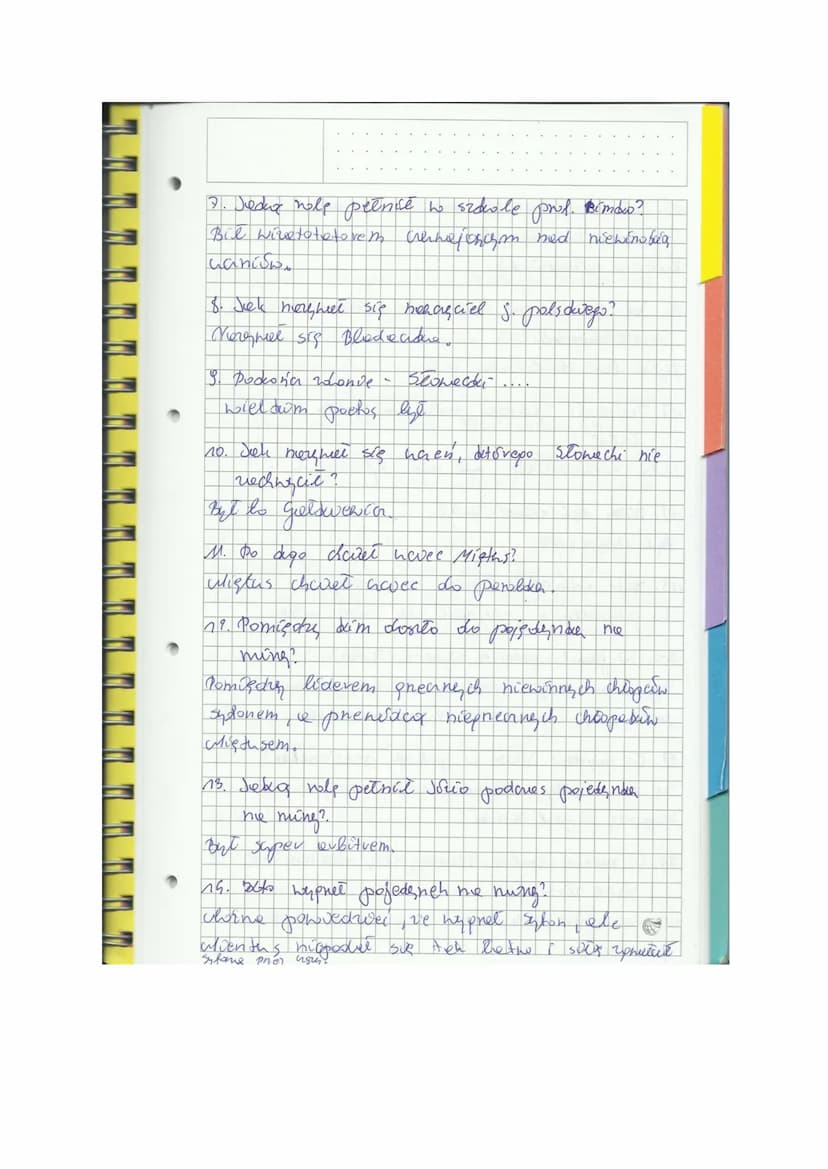 7. Jaką rolę pełnił w szkole prof. Pimko?
Bił wizytatorem czuwającym nad niewinością
uczniów.
8. Jak nazywał się nauczyciel j. polskiego?
Nazywał się Bladaczka.
9. Dokończ zdanie - Słowacki ....
wielkim poetą był
10. Jak nazywał się uczeń, którego Słowacki nie
zachwycił?
Był to Gałkiewicz.
11. Do kogo chciał uciec Miętus?
Miętus chciał uciec do parobka.
12. Pomiędzy kim doszło do pojedynku na
miny?
Pomiędzy liderem grzecznych niewinnych chłopców
syfonem, a przewódcą niegrzecznych chłopaków
Miętusem.
13. Jaką rolę pełnił Józio podczas pojedynku
na miny?
Był super arbitrem.
14. Kto wygrał pojedynek na miny?
Można powiedzieć, że wygrał syfon, ale
Mientus niepodał się tak łatwo i siłą zgwałcił
syfona przez uszy.